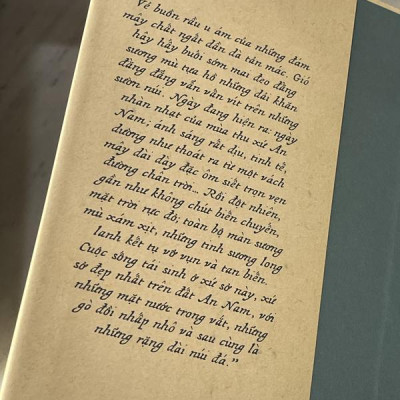 Vẻ buồn rầu u ám của những đám
mây chất ngất dần dà tản mác. Gió
hây hẩy buổi sớm mai đeo đẳng
sương mù tựa hồ những dải khăn
đằng đẵng vấn vít trên những
sườn núi. Ngày đang hiện ra: ngày
nhàn nhạt của mùa thu xứ An
Nam; ánh sáng rất dịu, tinh tế,
dường như thoát ra từ một vách
mây dài dày đặc ôm siết trọn vẹn
đường chân trời... Rồi đột nhiên,
gần như không chút biến chuyển,
mặt trời rực đỏ; toàn bộ màn sương
mù xám xịt, những tinh sương long
lanh kết tụ vỡ vụn và tan biến.
Cuộc sống tái sinh ở xứ sở này, xứ
sở đẹp nhất trên đất An Nam, với
những mặt nước trong vắt, những
gò đồi nhấp nhô và sau cùng là
những rặng dài núi đá."